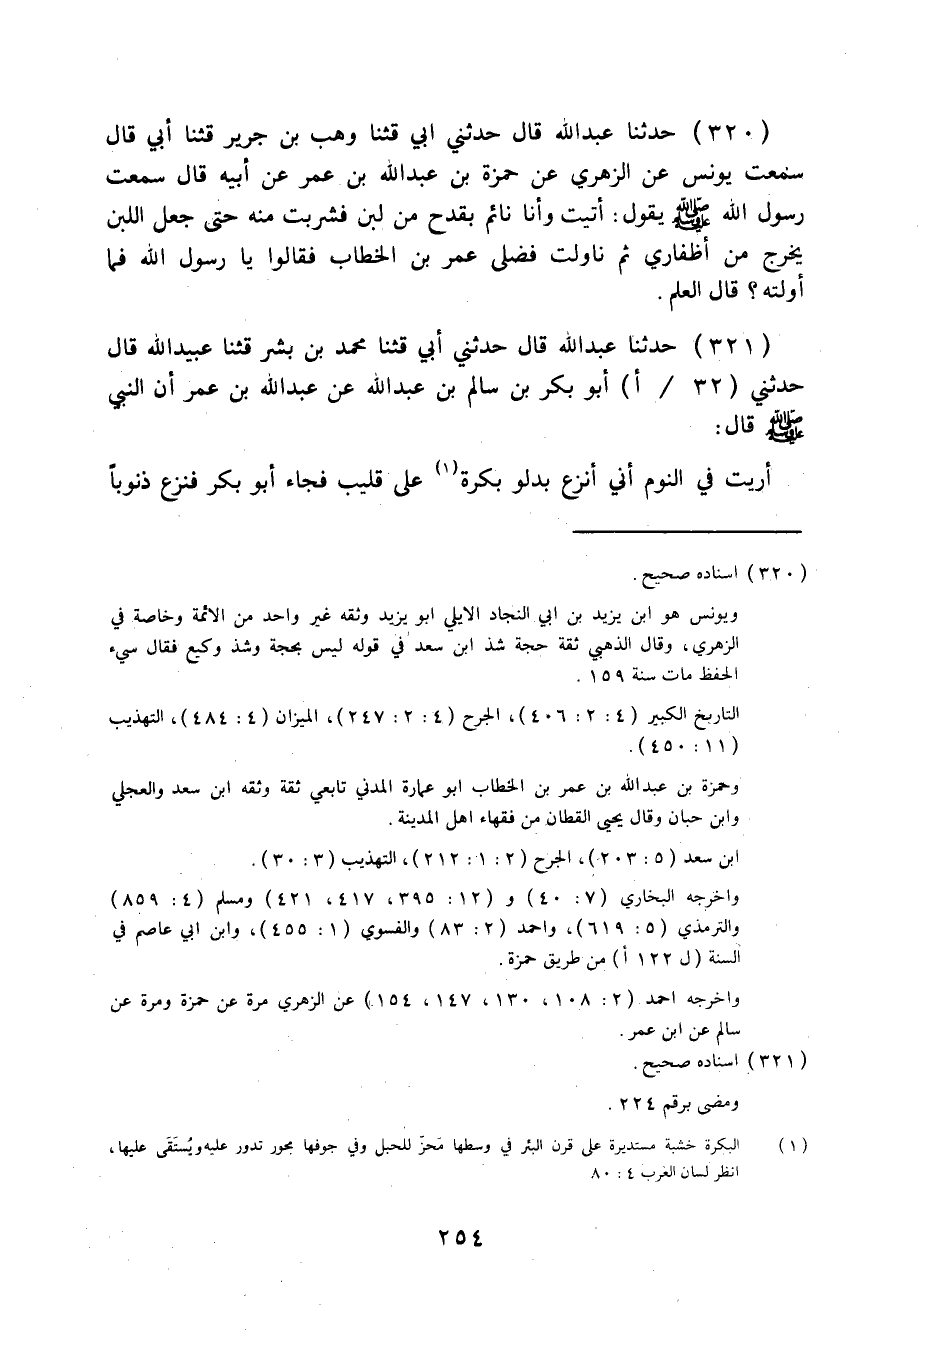 (٣٢٠) حدثنا عبدالله قال حدثني ابي قثنا وهب بن جرير قثنا أبي قال
سمعت يونس عن الزهري عن حمزة بن عبدالله بن عمر عن أبيه قال سمعت
رسول الله ﷺ يقول: أتيت وأنا نائم بقدح من لبن فشربت منه حتى جعل اللبن
يخرج من أظفاري ثم ناولت فضلى عمر بن الخطاب فقالوا يا رسول الله فما
أولته؟ قال العلم.
(٣٢١) حدثنا عبدالله قال حدثني أبي قثنا محمد بن بشر قثنا عبيدالله قال
حدثني (٣٢ / أ) أبو بكر بن سالم بن عبدالله عن عبدالله بن عمر أن النبي
ﷺ قال:
أريت في النوم أني أنزع بدلو بكرة(١) على قليب فجاء أبو بكر فنزع ذنوباً
(٣٢٠) اسناده صحيح.
ويونس هو ابن يزيد بن ابي النجاد الايلي ابو يزيد وثقه غير واحد من الائمة وخاصة في
الزهري، وقال الذهبي ثقة حجة شذ ابن سعد في قوله ليس بحجة وشذ وكيع فقال سيء
الحفظ مات سنة ١٥٩.
التاريخ الكبير (٤: ٢: ٤٠٦)، الجرح (٤: ٢: ٢٤٧)، الميزان (٤: ٤٨٤)، التهذيب
(١١: ٤٥٠).
وحمزة بن عبدالله بن عمر بن الخطاب ابو عمارة المدني تابعي ثقة وثقه ابن سعد والعجلي
وابن حبان وقال يحيى القطان من فقهاء اهل المدينة.
ابن سعد (٥: ٢٠٣)، الجرح (٢: ١: ٢١٢)، التهذيب (٣: ٣٠).
واخرجه البخاري (٧: ٤٠) و (١٢: ٣٩٥، ٤١٧، ٤٢١) ومسلم (٤: ٨٥٩)
والترمذي (٥: ٦١٩)، واحمد (٢: ٨٣) والفسوي (١: ٤٥٥)، وابن ابي عاصم في
السنة (ل ١٢٢ أ) من طريق حمزة.
واخرجه احمد (٢: ١٠٨، ١٣٠، ١٤٧، ١٥٤) عن الزهري مرة عن حمزة ومرة عن
سالم عن ابن عمر.
(٣٢١) اسناده صحيح.
ومضى برقم ٢٢٤.
(١) البكرة خشبة مستديرة على قرن البئر في وسطها مَحزّ للحبل وفي جوفها محور تدور عليه ويُستَقَى عليها،
انظر لسان العرب ٤: ٨٠
٢٥٤